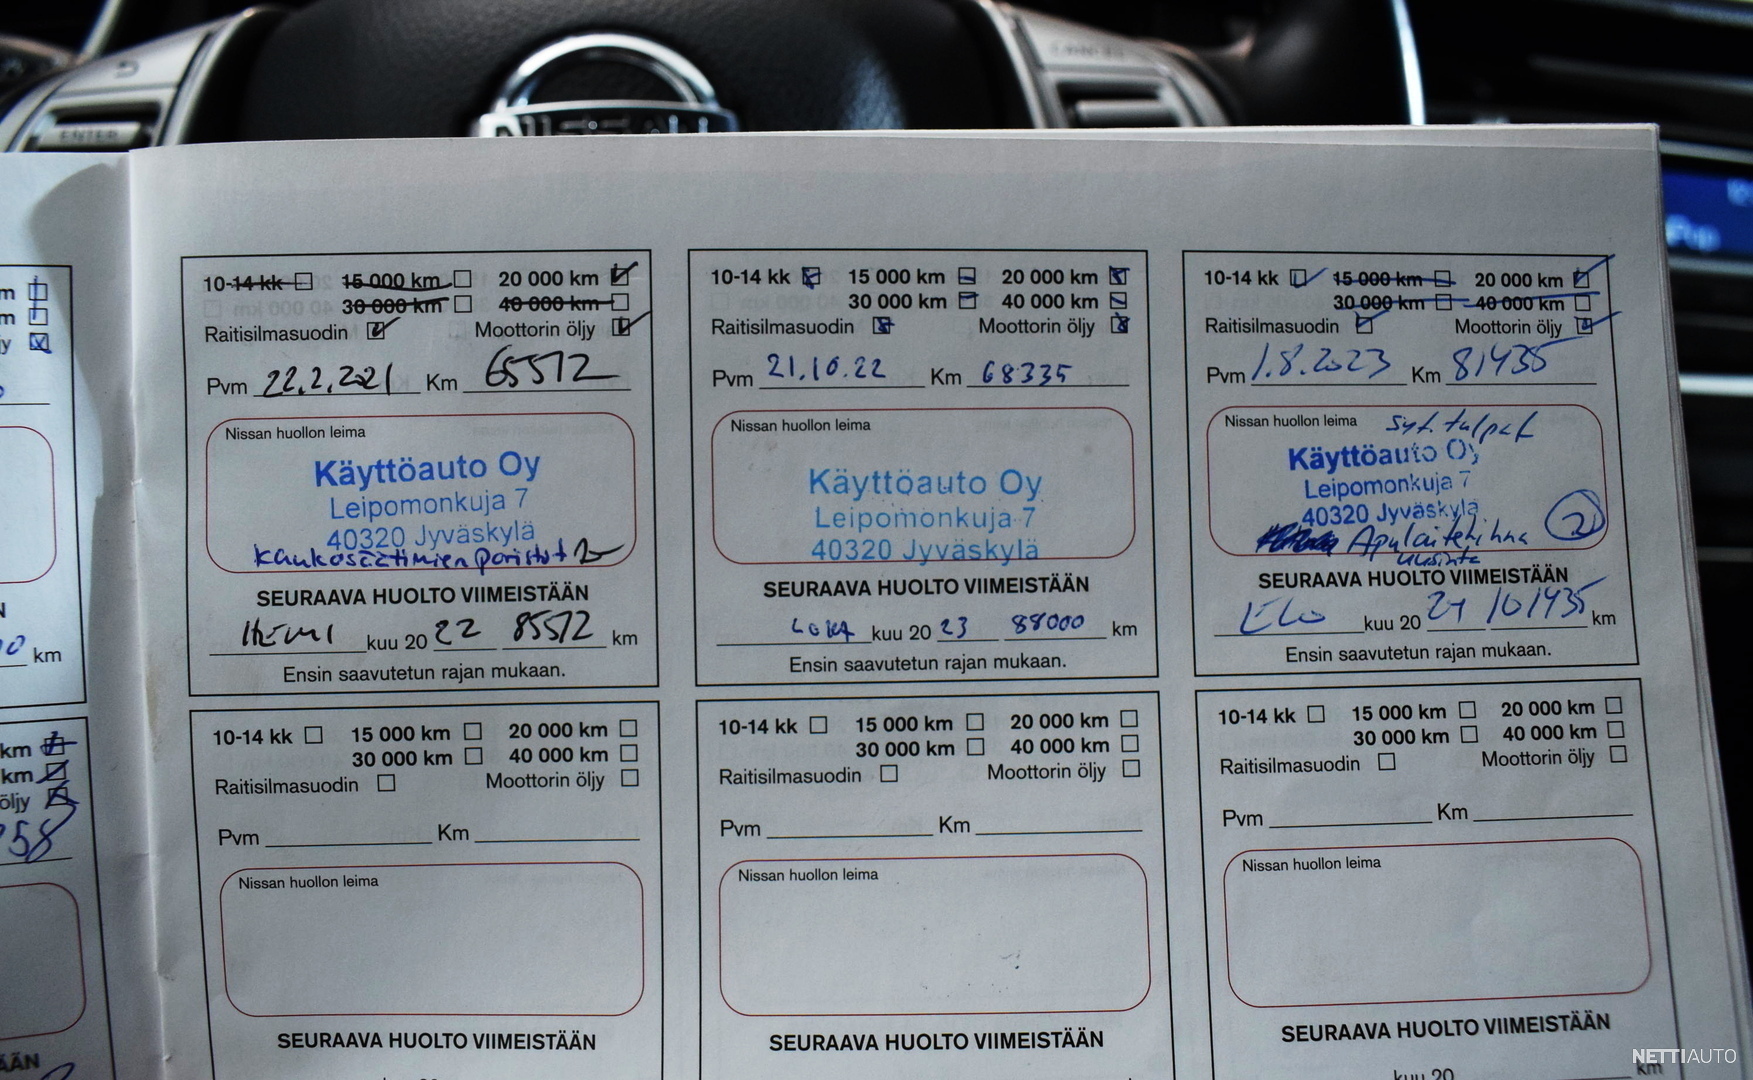 ENTER
NISSAN
10-14 kk 15 000 km 20 000 km
30 000 km 40 000 km
Raitisilmasuodin Moottorin öljy
Pvm 22.2.2021 Km 65572
Nissan huollon leima
Käyttöauto Oy
Leipomonkuja 7
40320 Jyväskylä
Kaukosäätimien paristot
SEURAAVA HUOLTO VIIMEISTÄÄN
HELMI kuu 20 22 85572 km
Ensin saavutetun rajan mukaan.
10-14 kk 15 000 km 20 000 km
30 000 km 40 000 km
Raitisilmasuodin Moottorin öljy
Pvm 21.10.22 Km 68335
Nissan huollon leima
Käyttöauto Oy
Leipomonkuja 7
40320 Jyväskylä
SEURAAVA HUOLTO VIIMEISTÄÄN
LOKA kuu 20 23 88000 km
Ensin saavutetun rajan mukaan.
10-14 kk 15 000 km 20 000 km
30 000 km 40 000 km
Raitisilmasuodin Moottorin öljy
Pvm 1.8.2023 Km 81435
Nissan huollon leima
Syt. tulpat
Käyttöauto Oy
Leipomonkuja 7
40320 Jyväskylä
Apulaitehihna 2
uusinta
SEURAAVA HUOLTO VIIMEISTÄÄN
ELO kuu 20 24 101435 km
Ensin saavutetun rajan mukaan.
10-14 kk 15 000 km 20 000 km
30 000 km 40 000 km
Raitisilmasuodin Moottorin öljy
Pvm Km
Nissan huollon leima
SEURAAVA HUOLTO VIIMEISTÄÄN
10-14 kk 15 000 km 20 000 km
30 000 km 40 000 km
Raitisilmasuodin Moottorin öljy
Pvm Km
Nissan huollon leima
SEURAAVA HUOLTO VIIMEISTÄÄN
10-14 kk 15 000 km 20 000 km
30 000 km 40 000 km
Raitisilmasuodin Moottorin öljy
Pvm Km
Nissan huollon leima
SEURAAVA HUOLTO VIIMEISTÄÄN
kuu 20 km
km
km
km
öljy
58
Pop
NETTIAUTO